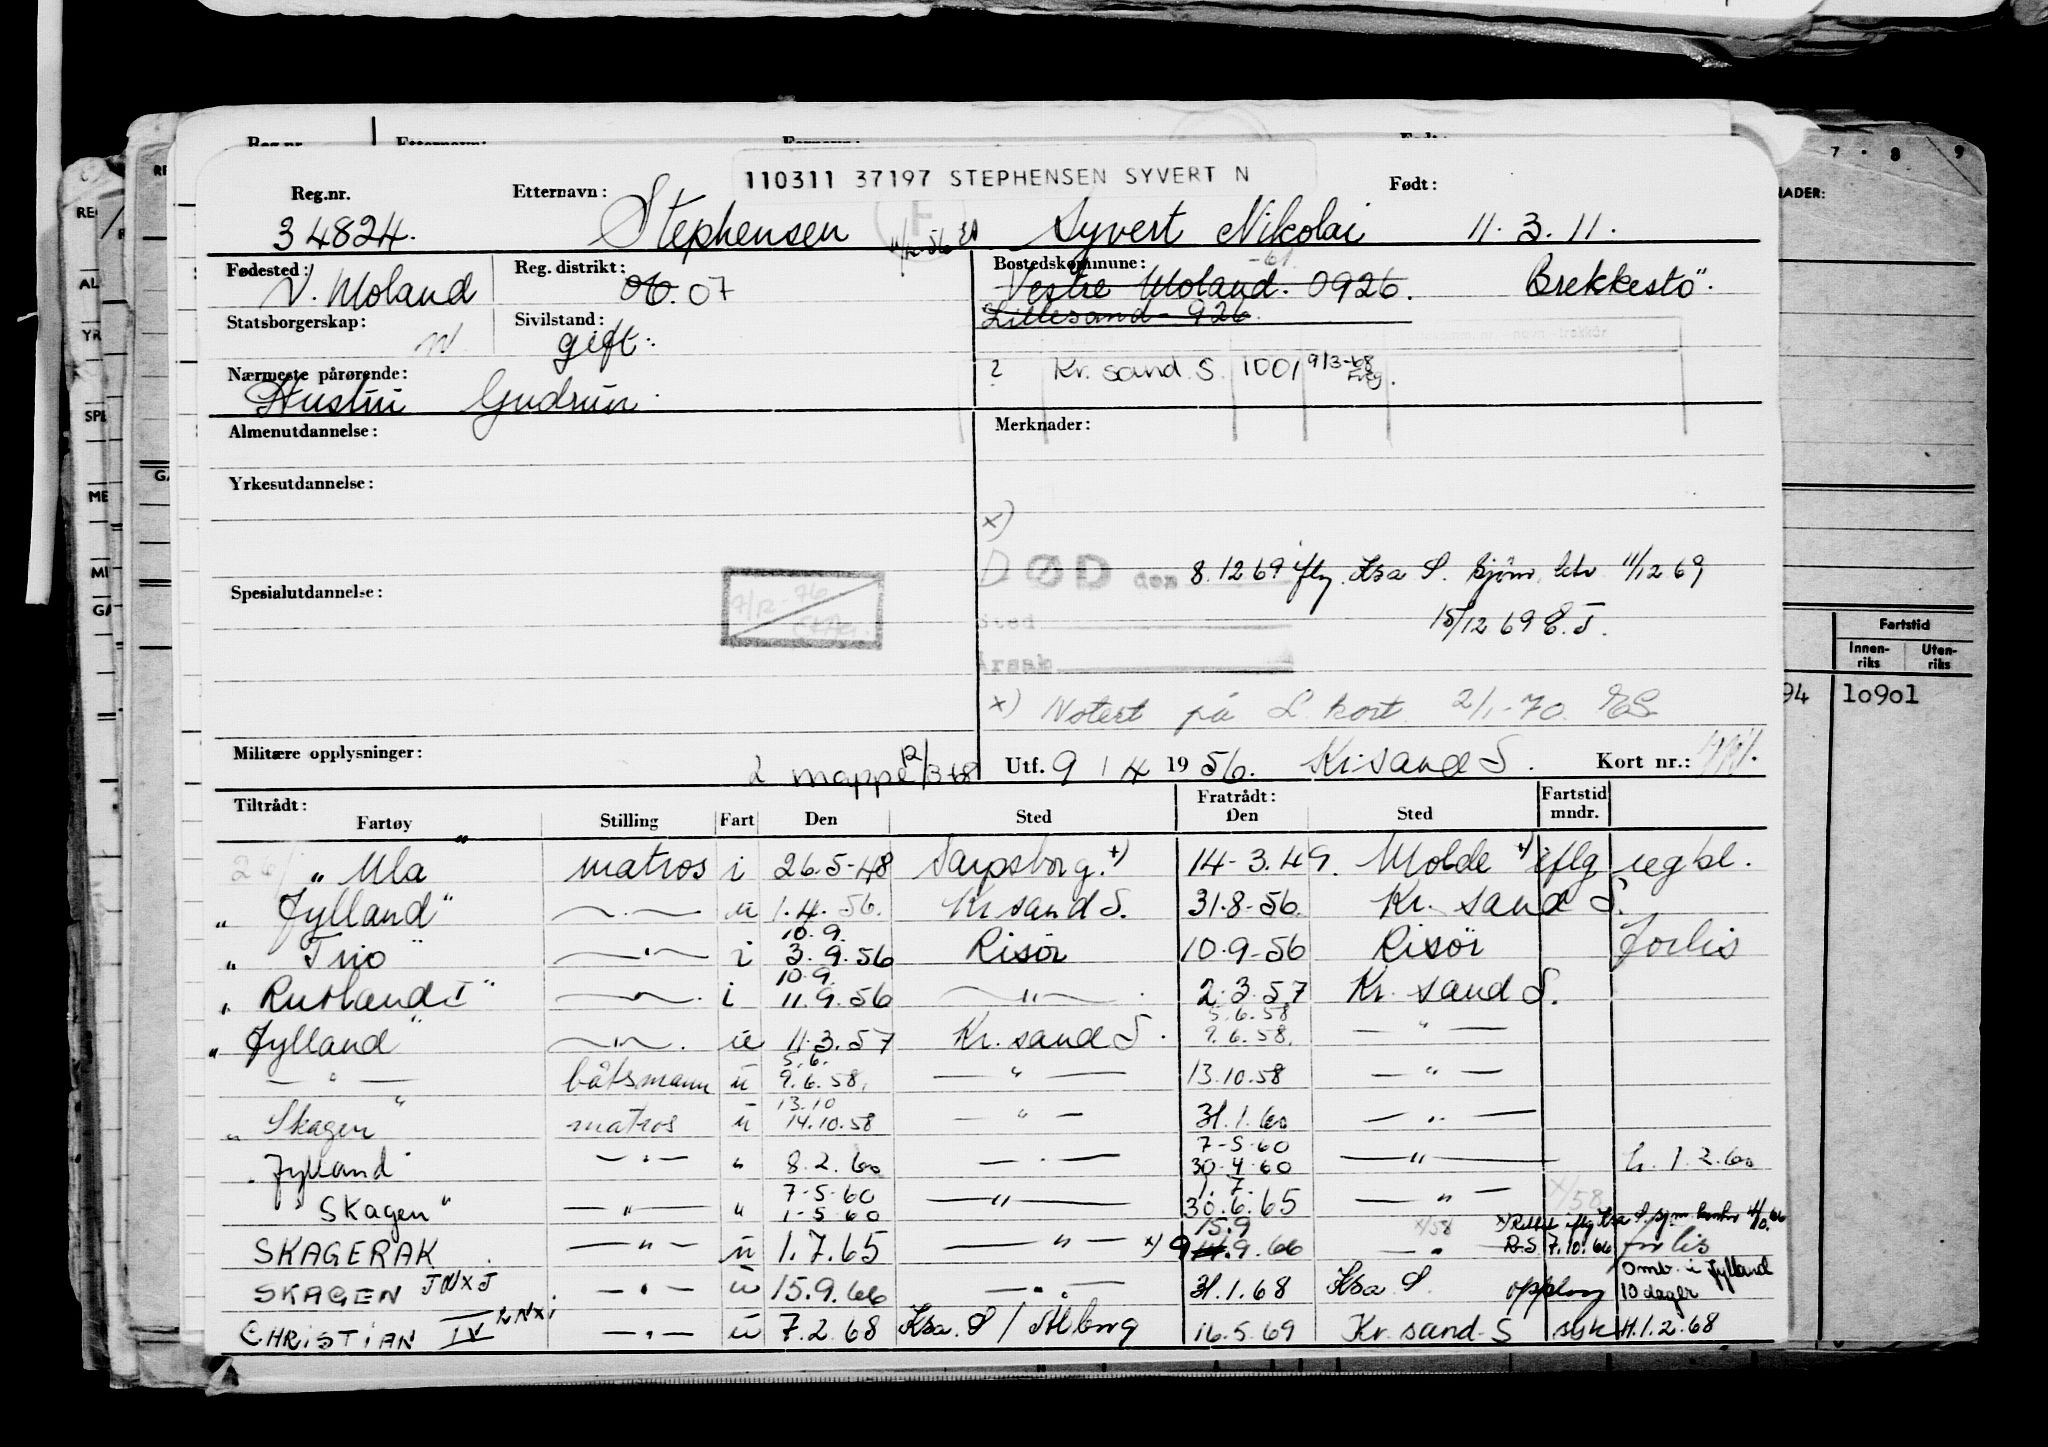 Reg.nr. Etternavn: Fornavn: Født:
110311 37197 STEPHENSEN SYVERT N
Reg.nr. Etternavn: Født:
34824. Stephensen Syvert Nikolai 11.3.11.
F
Fødested: Reg. distrikt: Bostedskommune:
V. Moland 06. 07 Vestre Moland. 0926. Brekkestö".
Statsborgerskap: Sivilstand: Lillesand - 926.
n. gift.
Nærmeste pårørende: 2 Kr. sand. S. 1001 9/3-68
Hustru Gudrun.
Almenutdannelse: Merknader:
Yrkesutdannelse:
x)
DØD den 8.12 69 iflg. Ksa S. 11/12 69
Spesialutdannelse:
9/12-76
Sted 15/12 69 E.J.
Årsak
x) Notert på L. kort. 2/1-70.
Militære opplysninger: 2 mappe 12/3-68 Utf. 9 / 4 19 56. Kr.sand S. Kort nr.:
Tiltrådt: Fratrådt: Fartstid
Fartøy Stilling Fart Den Sted Den Sted mndr.
„ Ula" matros i 26.5-48 Sarpsborg. x) 14-3.49. Molde x) iflg regbl.
„ Jylland" — " — u 1.4.56. Kr sand S. 31.8-56. Kr. sand S.
10.9.
„ Trio" — " — i 3.9.56 Risör 10.9-56 Risör forlis
10.9.
„ Rutland I" — " — i 11.9.56 — " — 2.3.57 Kr. sand S.
5.6.58
„ Jylland" — " — u 11.3.57 Kr. sand S. 9.6.58. — " —
5.6.
— " — båtsmann u 9.6.58. — " — 13.10.58 — " —
13.10
„ Skagen" matros u 14.10.58 — " — 31.1.60 — " —
7-5-60
„ Jylland" — " — " 8.2.60 — " — 30.4.60 — " — h. 1.2.60
7-5-60 1.7.
" Skagen" — " — " 1-5-60 — " — 30.6.65 — " —
15.9
SKAGERAK — " — u 1.7.65 — " — x) 9 14.9.66 — " — R.S. 7.10.66 forlis
Omb. i Jylland
SKAGEN JNXJ — " — u 15.9.66 — " — 31.1.68 Ksa S. opplag 10 dager
CHRISTIAN IV LNXI — " — u 7.2.68 Ksa. S / Ålborg 16.5.69 Kr. sand. S syk H.1.2.68
7 8 9
Fartstid
Innen- Uten-
riks riks
94 10901